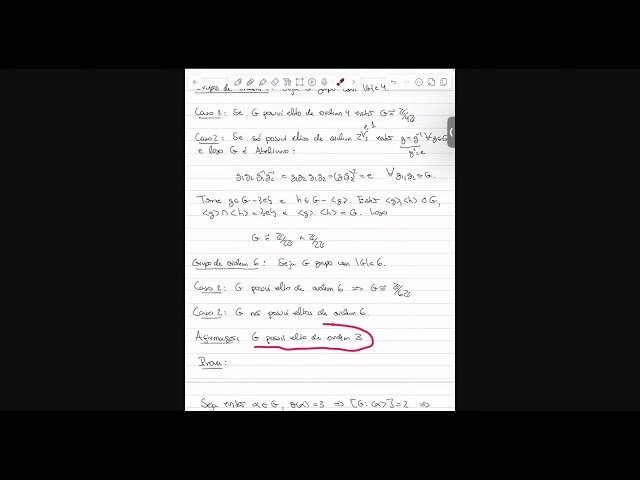 Grupo de ordem 4: Seja G grupo com |G|=4.
Caso 1: Se G possui elto de ordem 4 então G ≅ Z/4Z
Caso 2: Se só possui eltos de ordem 2 e 1, então g = g⁻¹ ∀g∈G
g²=e
e logo G é Abeliano:
g₁g₂ g₁⁻¹g₂⁻¹ = g₁g₂ g₁g₂ = (g₁g₂)² = e ∀ g₁,g₂ ∈ G.
Tome g∈G-{e} e h∈G-<g>. Então <g>,<h> ◁ G,
<g>∩<h> = {e} e <g>.<h> = G. Logo
G ≅ Z/2Z × Z/2Z
Grupo de ordem 6: Seja G grupo com |G|=6.
Caso 1: G possui elto de ordem 6 ⇒ G ≅ Z/6Z
Caso 2: G não possui eltos de ordem 6.
Afirmação: G possui elto de ordem 3
Prova:
Seja então α∈G, θ(α)=3 ⇒ [G:<α>]=2 ⇒